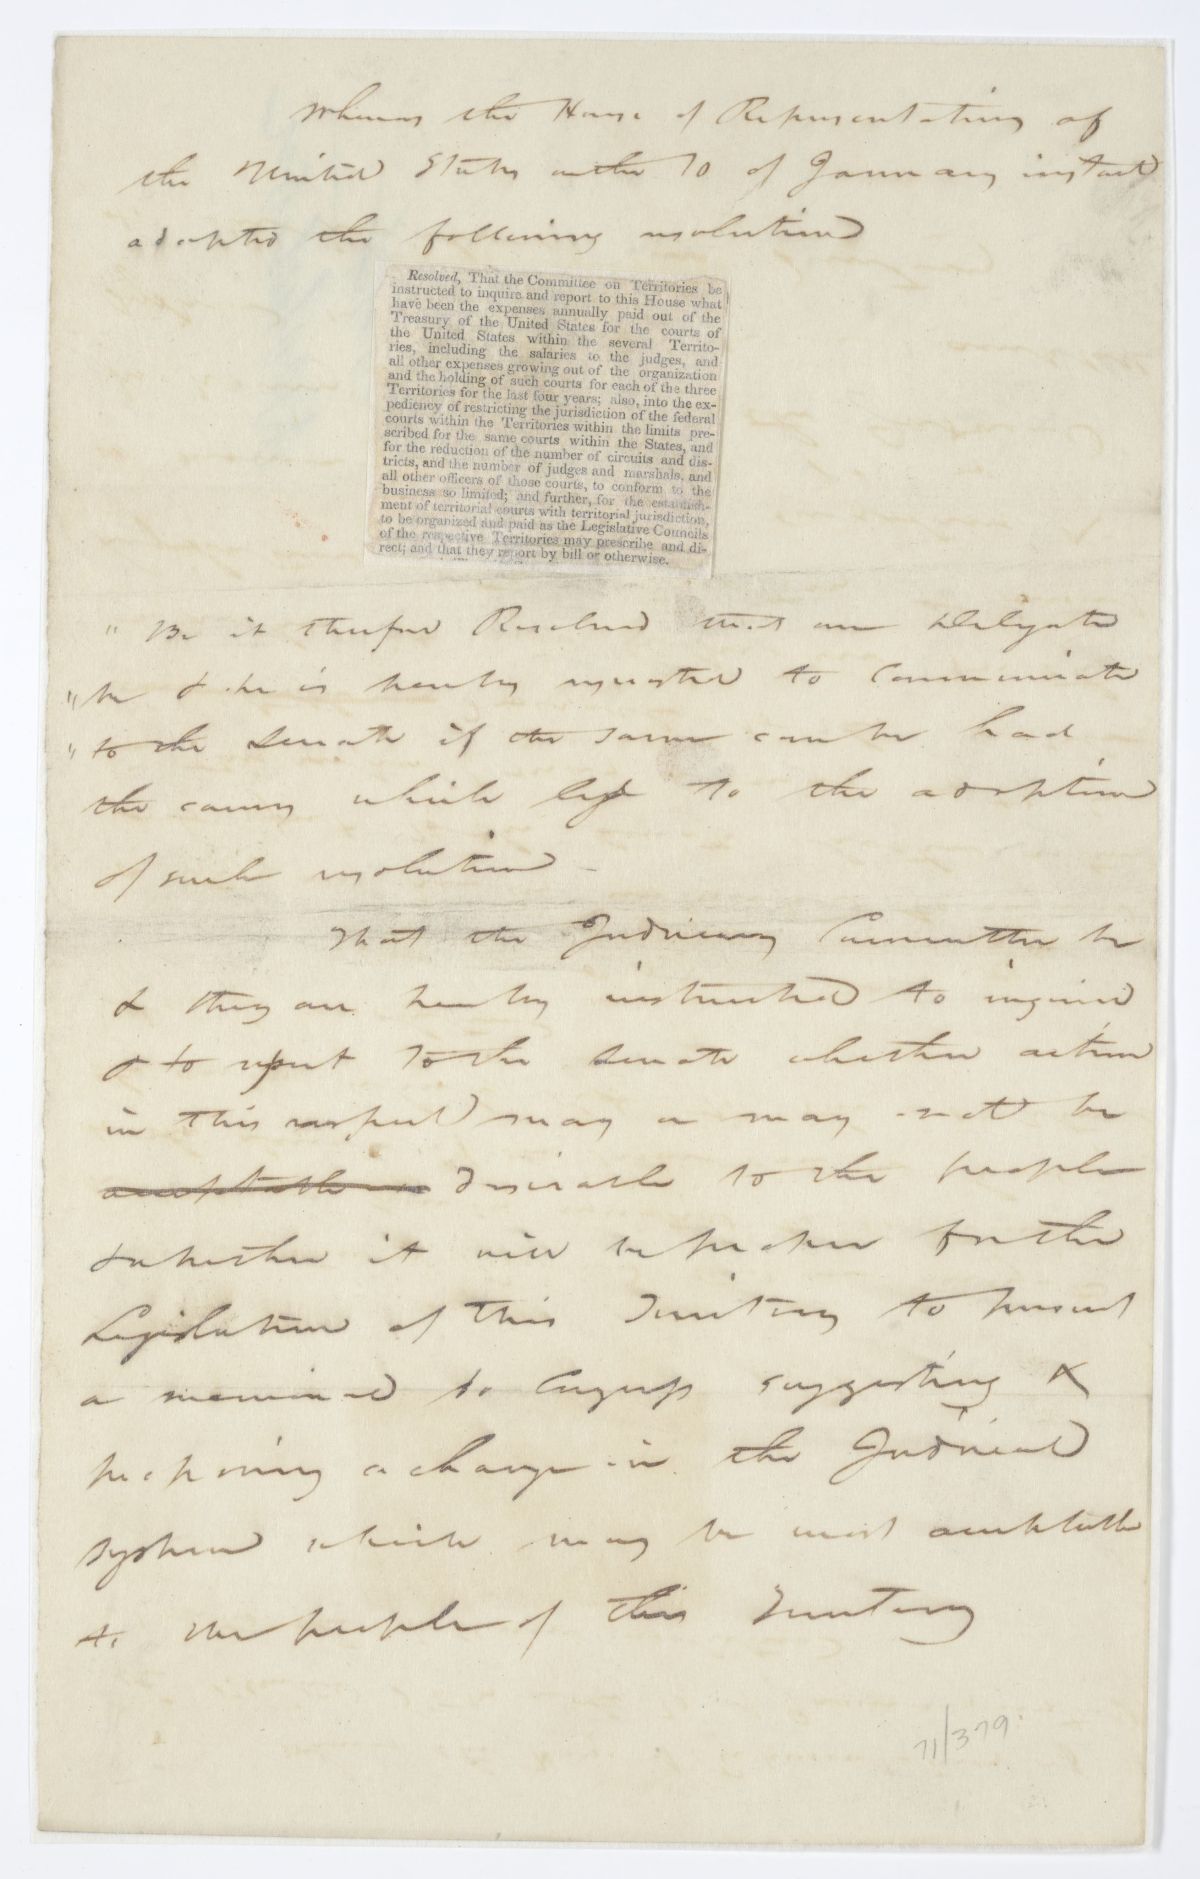 Whereas the House of Representatives of
the United States on the 10 of January instant
adopted the following resolution
Resolved, That the Committee on Territories be
instructed to inquire and report to this House what
have been the expenses annually paid out of the
Treasury of the United States for the courts of
the United States within the several Territo-
ries, including the salaries to the judges, and
all other expenses growing out of the organization
and the holding of such courts for each of the three
Territories for the last four years; also, into the ex-
pediency of restricting the jurisdiction of the federal
courts within the Territories within the limits pre-
scribed for the same courts within the States, and
for the reduction of the number of circuits and dis-
tricts, and the number of judges and marshals, and
all other officers of those courts, to conform to the
business so limited; and further, for the establish-
ment of territorial courts with territorial jurisdiction,
to be organized and paid as the Legislative Councils
of the respective Territories may prescribe and di-
rect; and that they report by bill or otherwise.
" Be it therefore Resolved that our Delegate
" be & he is hereby requested to communicate
" to the Senate if the same can be had
the causes which led to the adoption
of such resolution -
That the Judiciary Committee be
& they are hereby instructed to inquire
& to report to the Senate whether action
in this respect may or may not be
acceptable or desirable to the people
& whether it will be proper for the
Legislature of this Territory to present
a memorial to Congress suggesting &
proposing a change in the Judicial
system which may be most acceptable
to the people of this Territory
71/379.